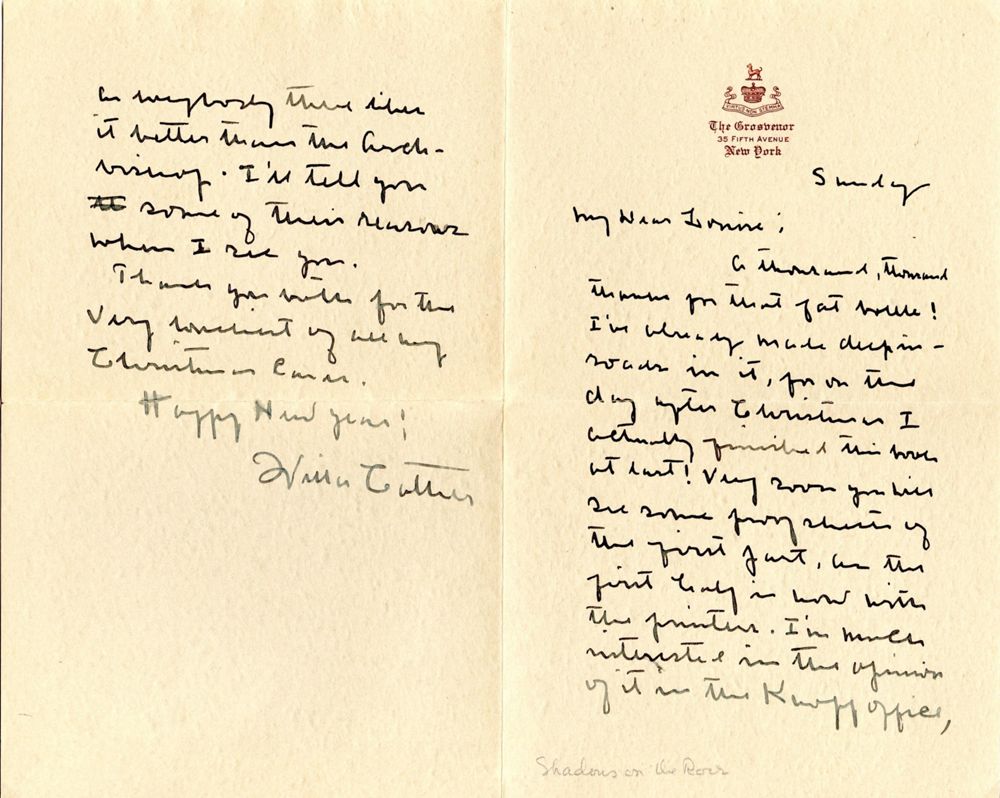 VIRTUS NON STEMMA
The Grosvenor
35 FIFTH AVENUE
New York
Sunday
My Dear Louise;
A thousand, thousand
thanks for that fat bottle!
I've already made deep in-
roads in it, for on the
day after Christmas I
actually finished this book
at last! Very soon you will
see some proof sheets of
the first part, as the
first half is now with
the printer. I'm much
interested in the opinion
of it in the Knopf office,
Shadows on the Rock
as everybody there likes
it better than the Arch-
bishop. I'll tell you
some of their reasons
when I see you.
Thank you both for the
very loveliest of all my
Christmas Cards.
Happy New Year!
Willa Cather